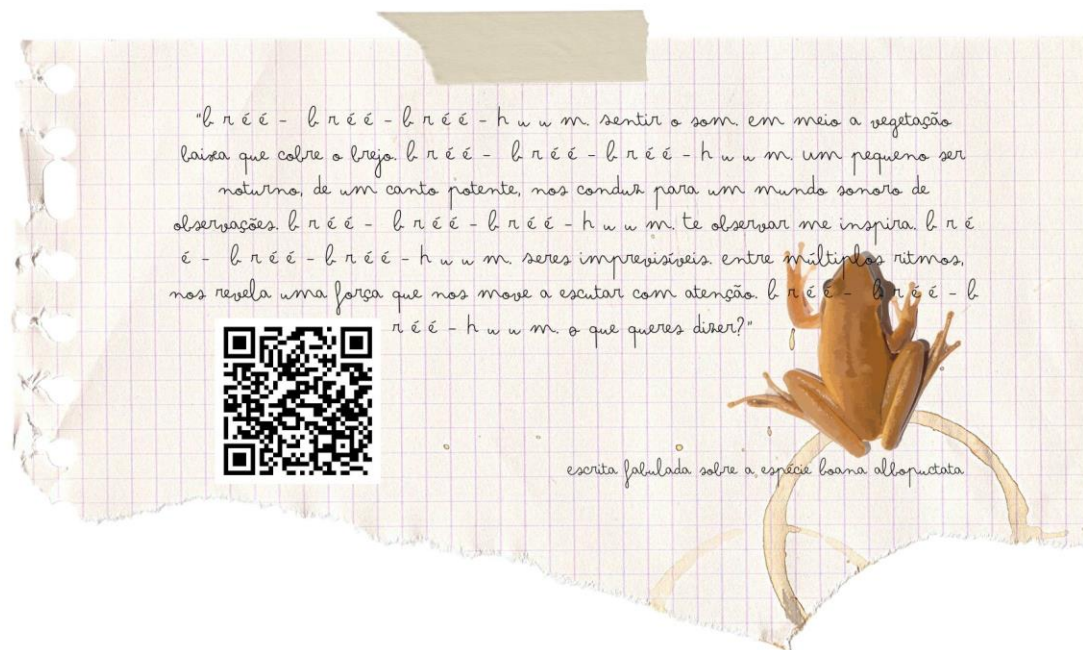 "b r é é - b r é é - b r é é - h u u m. sentir o som. em meio a vegetação
baixa que cobre o brejo. b r é é - b r é é - b r é é - h u u m. um pequeno ser
noturno, de um canto potente, nos conduz para um mundo sonoro de
observações. b r é é - b r é é - b r é é - h u u m. te observar me inspira. b r é
é - b r é é - b r é é - h u u m. seres imprevisíveis. entre múltiplos ritmos,
nos revela uma força que nos move a escutar com atenção. b r é é - b r é é - b
r é é - h u u m. o que queres dizer?"
escrita fabulada sobre a espécie boana albopuctata